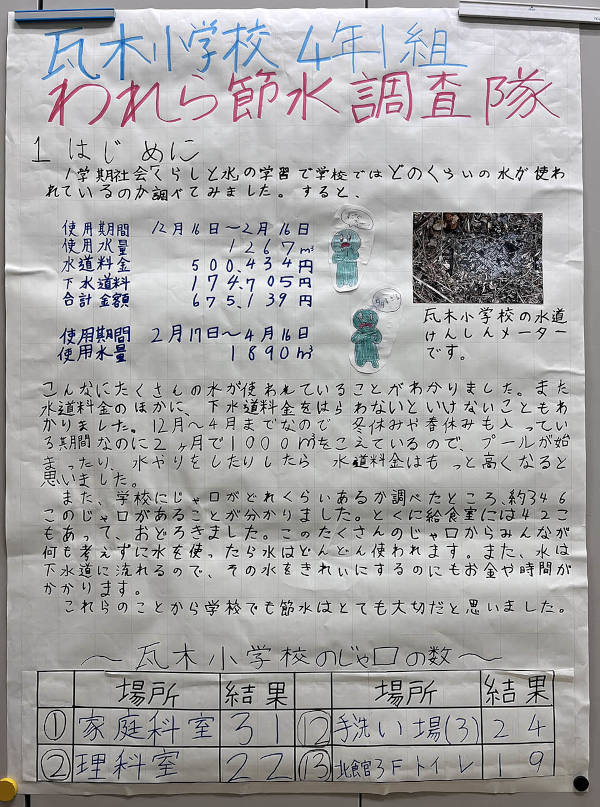 瓦木小学校 4年1組
われら節水調査隊
1 はじめに
1学期社会「くらしと水」の学習で学校ではどのくらいの水が使わ
れているのか調べてみました。すると、
使用期間 12月16日〜2月16日
使用水量 1267㎥
水道料金 500,434円
下水道料 174,705円
合計金額 675,139円
使用期間 2月17日〜4月16日
使用水量 1890㎥
瓦木小学校の水道
けんしんメーター
です。
こんなにたくさんの水が使われていることがわかりました。また
水道料金のほかに、下水道料金をはらわないといけないこともわ
かりました。12月〜4月までなので 冬休みや春休みも入ってい
る期間なのに2ヶ月で1000㎥をこえているので、プールが始
まったり、水やりをしたりしたら 水道料金はもっと高くなると
思いました。
また、学校にじゃ口がどれくらいあるか調べたところ、約346
このじゃ口があることが分かりました。とくに給食室には42こ
もあって、おどろきました。このたくさんのじゃ口からみんなが
何も考えずに水を使ったら水はどんどん使われます。また、水は
下水道に流れるので、その水をきれいにするのにもお金や時間が
かかります。
これらのことから学校でも節水はとても大切だと思いました。
〜瓦木小学校のじゃ口の数〜
場所 結果 場所 結果
① 家庭科室 31 ⑫ 手洗い場(3) 24
② 理科室 22 ⑬ 北食官3Fトイレ 19